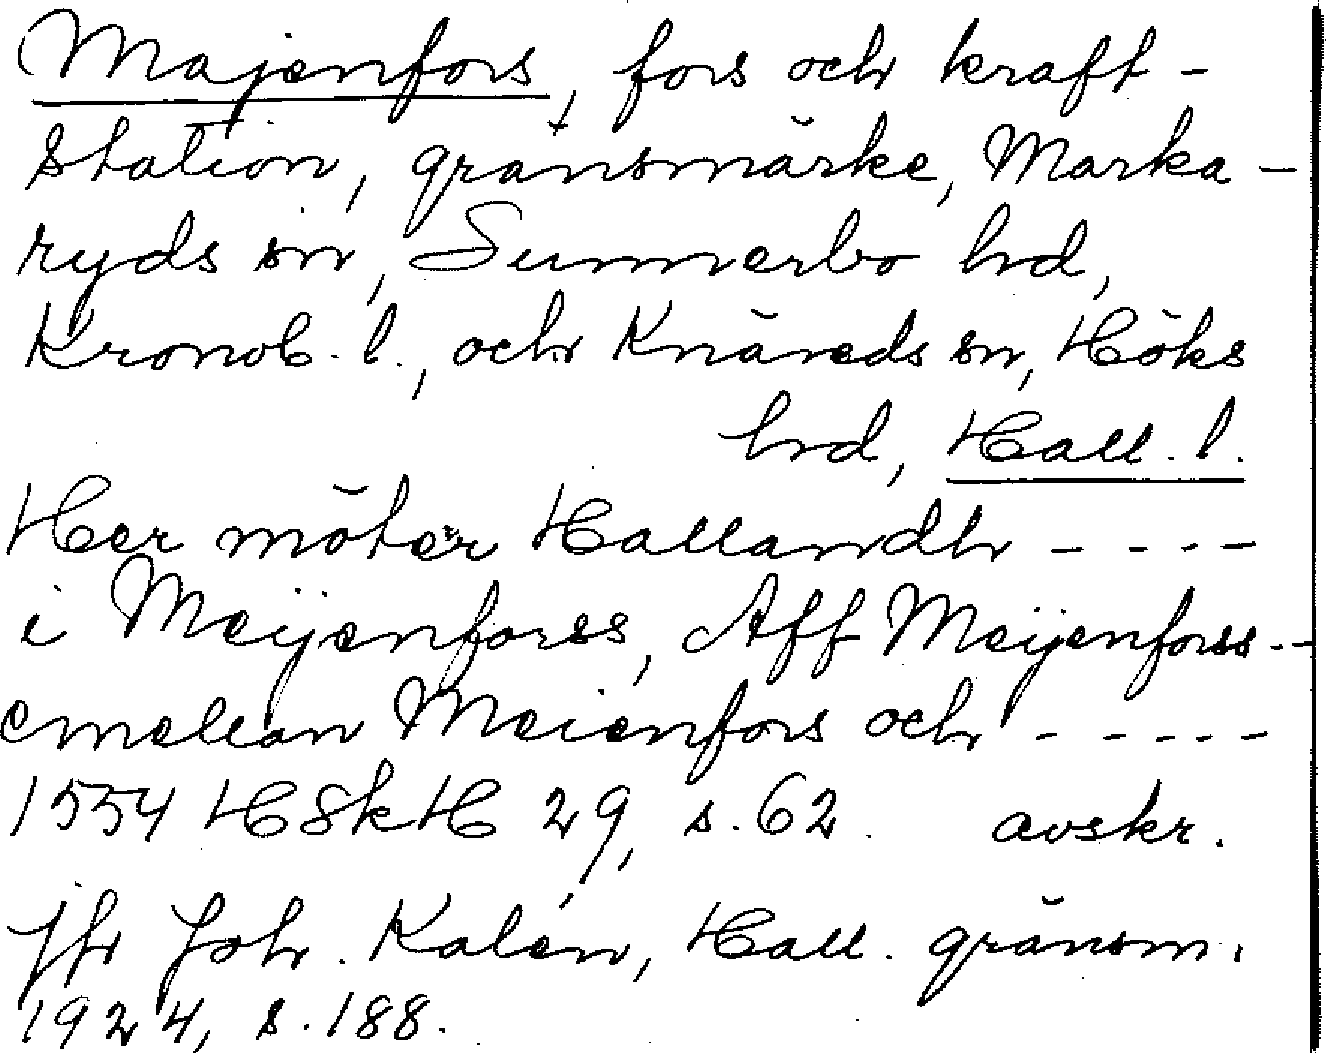 Majenfors, fors och kraft-
station, gränsmärke, Marka-
ryds sn, Sunnerbo hd,
Kronob. l., och Knäreds sn, Höks
hd, Hall. l.
Her möter Hallandh - - - -
i Meÿenforss, Aff Meÿenforss - -
emellan Meienfors och - - - - -
1554 HSkH 29, s. 62. avskr.
Jfr Joh. Kalén, Hall. gränsm.
1924, s. 188.